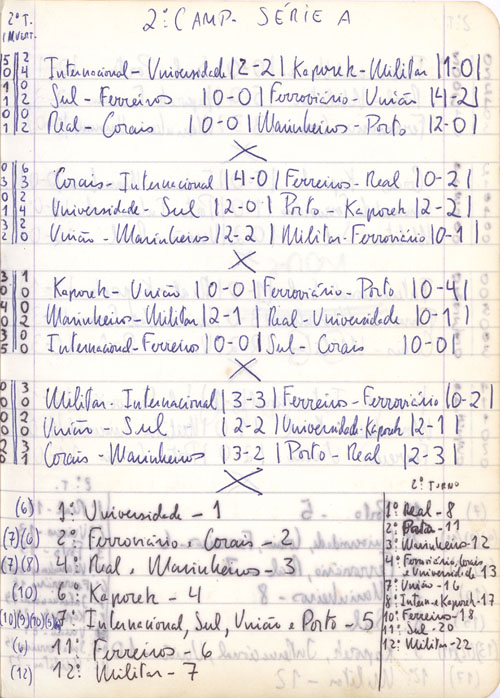 2º T. 2º CAMP. SÉRIE A
INVERT.
5 2 Internacional - Universidade |2-2| Kaporek - Militar |1-0|
0 4
1 0 Sul - Ferreiros |0-0| Ferroviário - União |4-2|
1 2
0 0 Real - Corais |0-0| Marinheiros - Porto |2-0|
1 2
X
0 6 Corais - Internacional |4-0| Ferreiros - Real |0-2|
3 3
0 2 Universidade - Sul |2-0| Porto - Kaporek |2-2|
1 4
3 2 União - Marinheiros |2-2| Militar - Ferroviário |0-1|
2 0
X
3 1 Kaporek - União |0-0| Ferroviário - Porto |0-4|
0 0
4 0 Marinheiros - Militar |2-1| Real - Universidade |0-1|
0 2
3 0 Internacional - Ferreiros |0-0| Sul - Corais |0-0|
5 0
X
0 3 Militar - Internacional |3-3| Ferreiros - Ferroviário |0-2|
0 3
0 2 União - Sul |2-2| Universidade - Kaporek |2-1|
0 2
2 3 Corais - Marinheiros |3-2| Porto - Real |2-3|
0 1
X
2º TURNO
(6) 1º Universidade - 1
(7)(6) 2º Ferroviário e Corais - 2
(7)(8) 4º Real e Marinheiros - 3
(10) 6º Kaporek - 4
7º Internacional, Sul, União e Porto - 5
11º Ferreiros - 6
(12) 12º Militar - 7
1º Real - 8
2º Porto - 11
3º Marinheiros - 12
4º Ferroviário, Corais
e Universidade - 13
7º União - 16
8º Intern. e Kaporek - 17
10º Ferreiros - 18
11º Sul - 20
12º Militar - 22